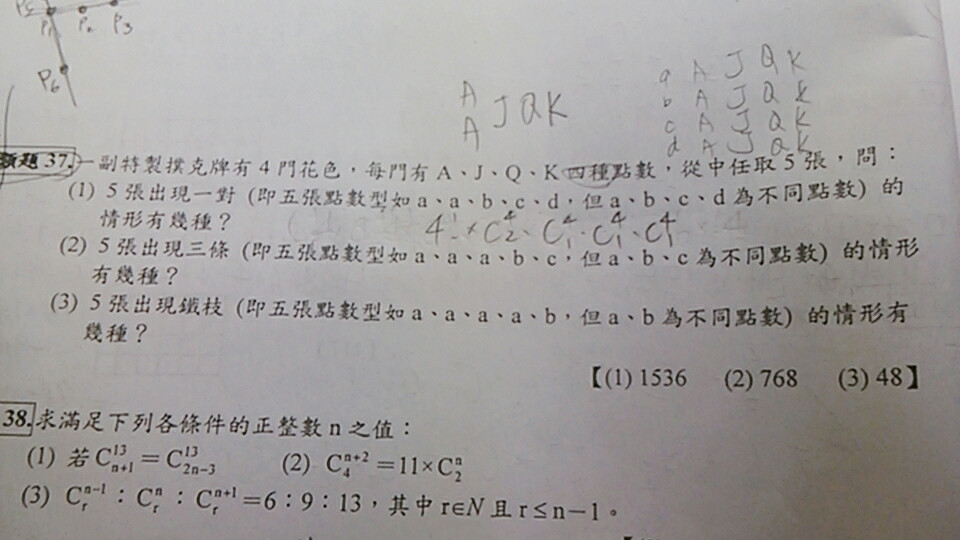 P₁ P₂ P₃
P₆
A
A J Q K
a A J Q K
b A J Q K
c A J Q K
d A J Q K
類題 37. 一副特製撲克牌有 4 門花色，每門有 A、J、Q、K 四種點數，從中任取 5 張，問：
(1) 5 張出現一對 (即五張點數型如 a、a、b、c、d，但 a、b、c、d 為不同點數) 的
情形有幾種？
(2) 5 張出現三條 (即五張點數型如 a、a、a、b、c，但 a、b、c 為不同點數) 的情形
有幾種？
(3) 5 張出現鐵枝 (即五張點數型如 a、a、a、a、b，但 a、b 為不同點數) 的情形有
幾種？
【(1) 1536 (2) 768 (3) 48】
38. 求滿足下列各條件的正整數 n 之值：
(1) 若 C^{13}_{n+1} = C^{13}_{2n−3} (2) C^{n+2}_{4} = 11 × C^{n}_{2}
(3) C^{n−1}_{r} : C^{n}_{r} : C^{n+1}_{r} = 6 : 9 : 13，其中 r∈N 且 r ≤ n−1。